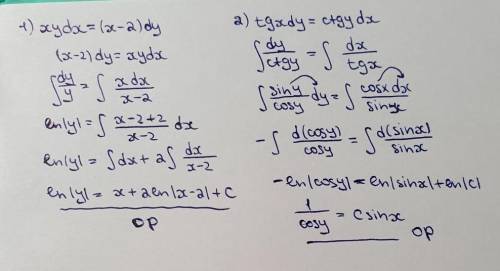 1) xydx = (x-2)dy
(x-2)dy = xydx
∫ dy/y = ∫ xdx/(x-2)
ln|y| = ∫ (x-2+2)/(x-2) dx
ln|y| = ∫dx + 2∫ dx/(x-2)
ln|y| = x + 2ln|x-2| + C
ор
2) tgxdy = ctgydx
∫ dy/ctgy = ∫ dx/tgx
∫ siny/cosy dy = ∫ cosxdx/sinx
-∫ d(cosy)/cosy = ∫ d(sinx)/sinx
-ln|cosy| = ln|sinx| + ln|C|
1/cosy = C sinx
ор